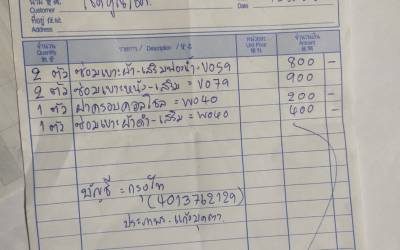 Customer
Address
จำนวน รายการ / Description / หน่วยละ จำนวนเงิน
Quantity Unit Price Amount
2 ตัว ซ่อมเบาะผ้า-เสริมฟองน้ำ = V059 800 -
2 ตัว ซ่อมเบาะหนัง-เสริม = V079 900
1 ตัว ฝาครอบคอลโซล = W040 200 -
1 ตัว ซ่อมเบาะผ้าดำ-เสริม = W040 400 -
บัญชี = กรุงไท
(4013762129)